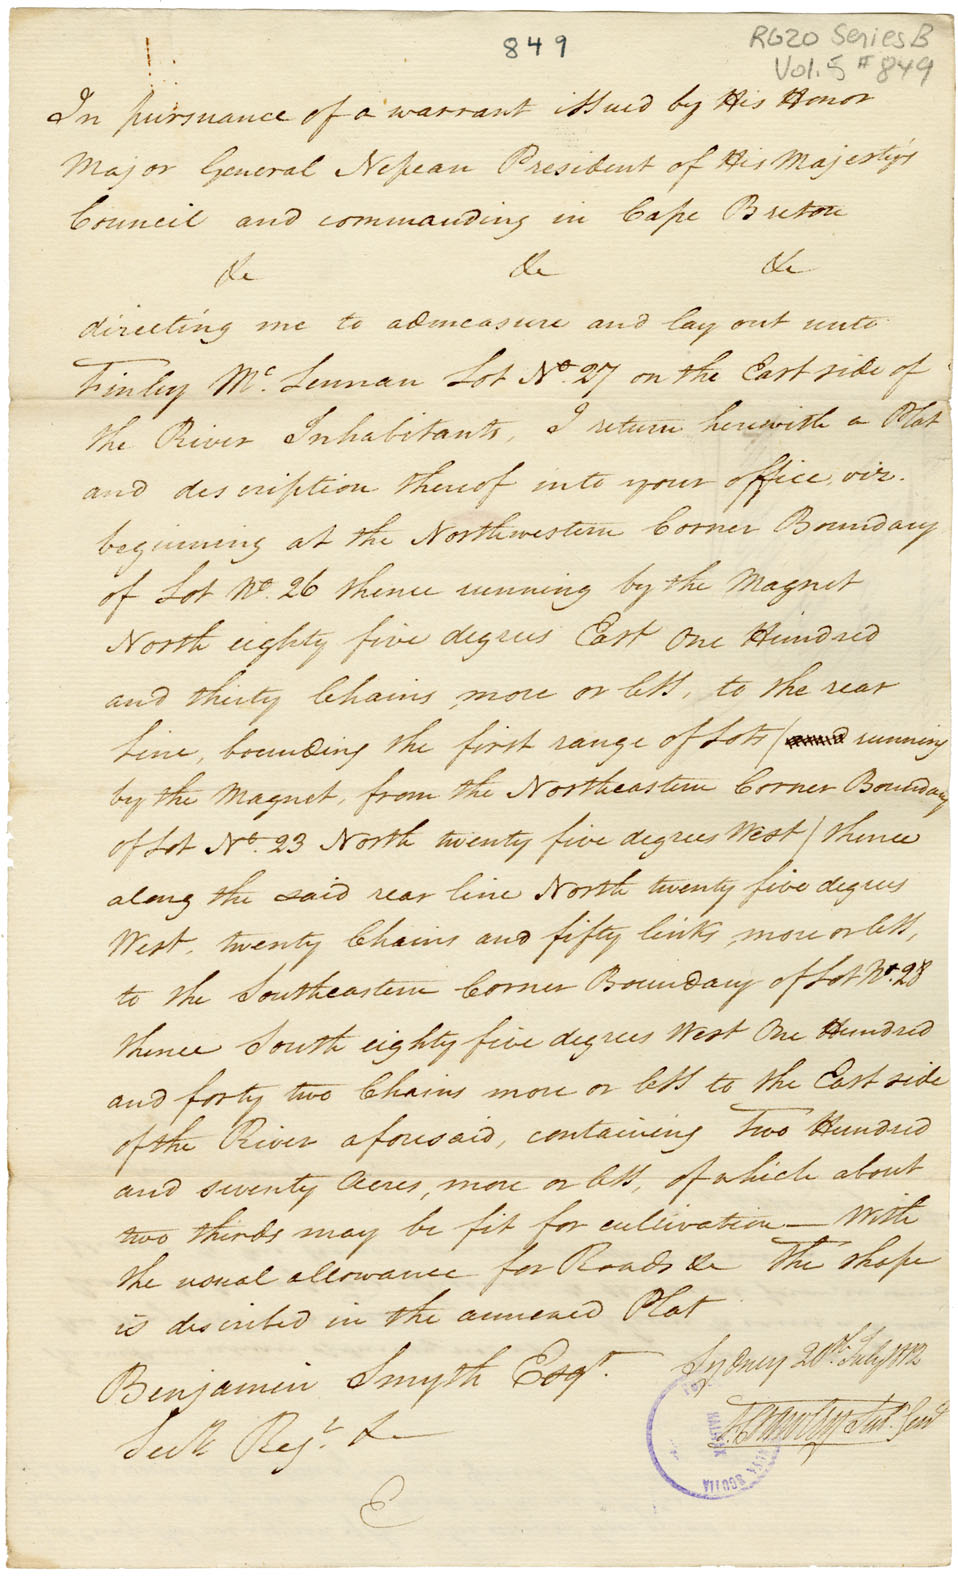 849
RG20 Series B
Vol. 5 #849
In pursuance of a warrant issued by His Honor
Major General Nepean President of His Majesty's
Council and commanding in Cape Breton
&c &c &c
directing me to admeasure and lay out unto
Finlay Mc. Lennan Lot No. 27 on the East side of
the River Inhabitants, I return herewith a Plat
and description thereof into your office, viz.
beginning at the Northwestern Corner Boundary
of Lot No. 26 thence running by the Magnet
North eighty five degrees East One Hundred
and thirty Chains, more or less, to the rear
line, bounding the first range of Lots / running
by the Magnet, from the Northeastern Corner Boundary
of Lot No. 23 North twenty five degrees West / thence
along the said rear line North twenty five degrees
West, twenty Chains and fifty links, more or less,
to the Southeastern Corner Boundary of Lot No. 28
thence South eighty five degrees West One Hundred
and forty two Chains more or less to the East side
of the River aforesaid, containing Two Hundred
and seventy Acres, more or less, of which about
two thirds may be fit for cultivation — With
the usual allowance for Roads &c The shape
is discribed in the annexed Plat
Sydney 20th July 1812
Benjamin Smyth Esqr.
Surr. Genl
Secy Regr. &c
HALIFAX
SCOTIA
E